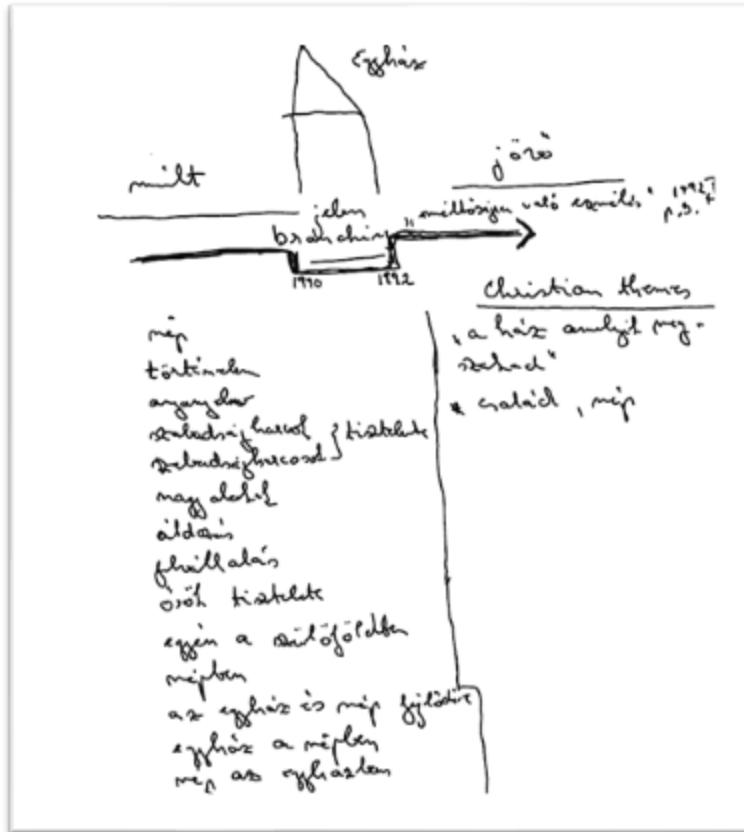 Egyház
múlt
jövő
jelen
branching
„méltóságon való" 1992
1990 1992
Christian themes
„a ház amelyik meg-
szakad"
* család, nép
nép
történelem
anyanyelv
szabadságharcok } tisztelete
szabadságharcosok
nagy alakok
áldozás
felvállalás
ősök tisztelete
egyén a szülőföldben
népben
az egyház és nép fejlődése
egyház a népben
nép az egyházban